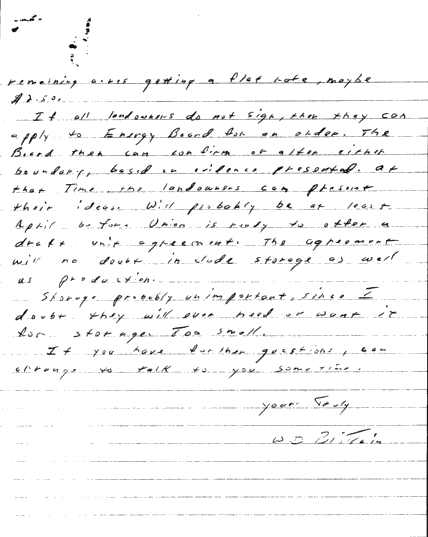 remaining acres getting a flat rate, maybe
$2.50.
If all landowners do not sign, then they can
apply to Energy Board for an order. The
Board then can confirm or alter either
boundary, based on evidence presented. at
that Time the landowners can present
their ideas. Will probably be at least
April before Union is ready to offer a
draft unit agreement. The agreement
will no doubt include storage as well
as production.
Storage probably unimportant, since I
doubt they will ever need or want it
for storage. Too small.
If you have further questions, can
arrange to talk to you some time.
yours Truly
W D Brittain